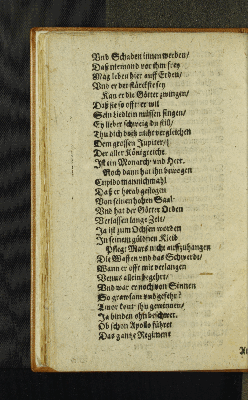 Vnd Schaden innen werden/
Daß niemond vor ihm frey
Mag leben hier auff Erden/
Vnd er der stärckste sey
Kan er die Götter zwingen/
Daß sie so offt er wil
Sein Liedlein müssen singen/
Ey lieber schweig du still/
Thu dich doch nicht vergleichen
Dem grossen Jupiter/
Der aller Königreiche
Ist ein Monarch und Herr.
Noch dann hat ihn bewogen
Cupido mannichmahl
Daß er herab gezogen
Von seinen hohen Saal
Vnd hat der Götter Orden
Verlassen lange Zeit/
Ja ist zum Ochsen worden
In seinem güldnen Kleid
Pflegt Mars nicht auffzuhangen
Die Waffen vnd das Schwerdt/
Wann er offt mit verlangen
Venus allein begehrt/
Vnd war er noch von Sinnen
So grawsam vnd gefehr?
Amor kont ihn gewinnen/
Ja binden ohn beschwer.
Ob schon Apollo führet
Das gantze Regiment